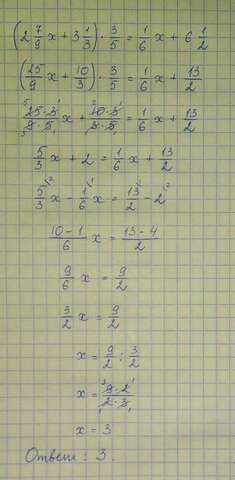 (2 7/9 x + 3 1/3) · 3/5 = 1/6 x + 6 1/2
(25/9 x + 10/3) · 3/5 = 1/6 x + 13/2
25·3/9·5 x + 10·3/3·5 = 1/6 x + 13/2
5/3 x + 2 = 1/6 x + 13/2
5/3 x - 1/6 x = 13/2 - 2
10-1/6 x = 13-4/2
9/6 x = 9/2
3/2 x = 9/2
x = 9/2 : 3/2
x = 9·2/2·3
x = 3
Ответ: 3.